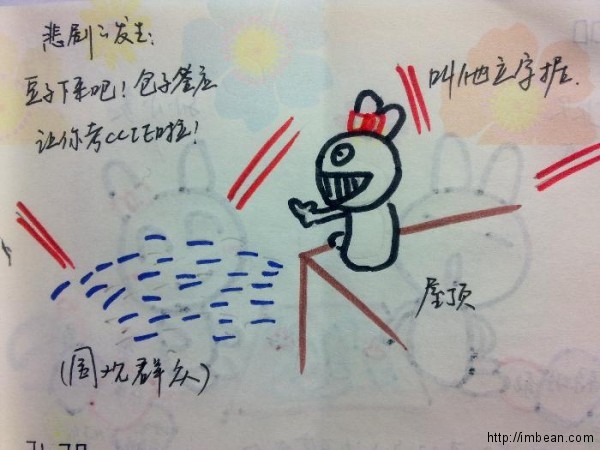 悲剧之发生:
豆子下来吧!包子答应
让你考CCIE啦!
叫他立字据.
屋顶
(围观群众)
http://imbean.com